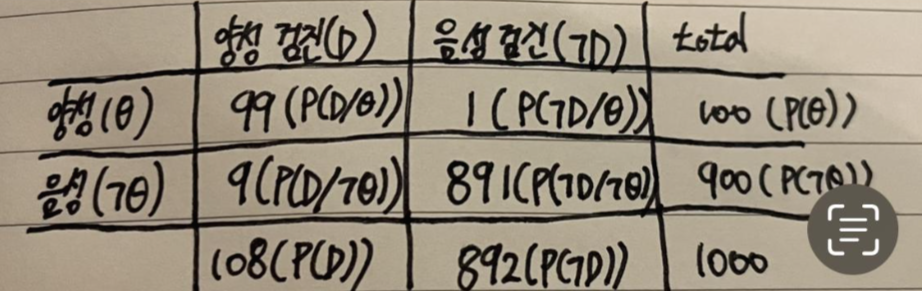 양성 검진(D) 음성 검진(ㄱD) total
양성(θ) 99(P(D/θ)) 1(P(ㄱD/θ)) 100(P(θ))
음성(ㄱθ) 9(P(D/ㄱθ)) 891(P(ㄱD/ㄱθ) 900(P(ㄱθ))
108(P(D)) 892(P(ㄱD)) 1000